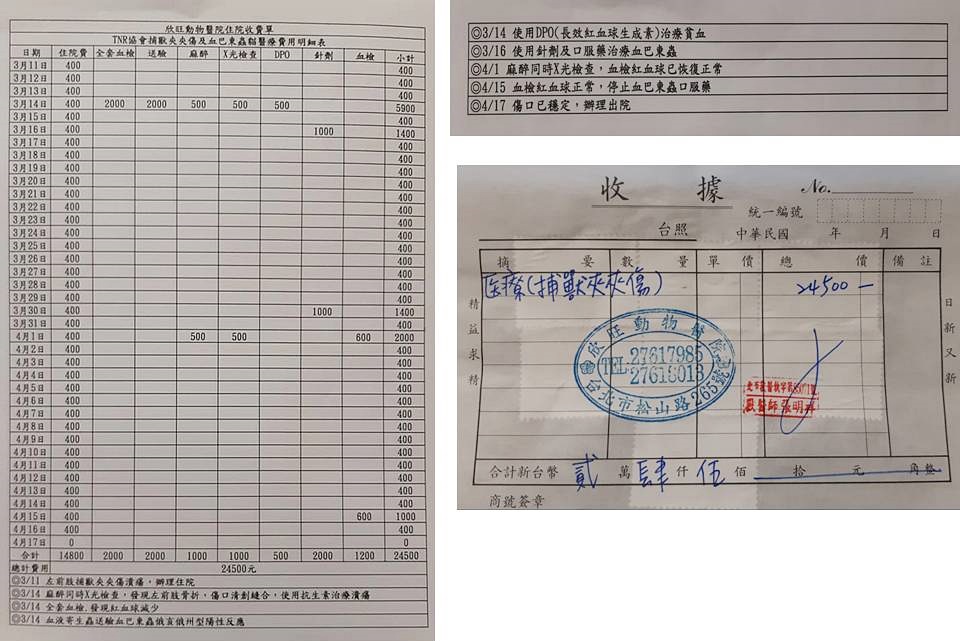 欣旺動物醫院住院收費單
TNR協會捕獸夾夾傷及血巴東蟲貓醫療費用明細表
日期 住院費 全套血檢 送驗 麻醉 X光檢查 DPO 針劑 血檢 小計
3月11日 400 400
3月12日 400 400
3月13日 400 400
3月14日 400 2000 2000 500 500 500 5900
3月15日 400 400
3月16日 400 1000 1400
3月17日 400 400
3月18日 400 400
3月19日 400 400
3月20日 400 400
3月21日 400 400
3月22日 400 400
3月23日 400 400
3月24日 400 400
3月25日 400 400
3月26日 400 400
3月27日 400 400
3月28日 400 400
3月29日 400 400
3月30日 400 1000 1400
3月31日 400 400
4月1日 400 500 500 600 2000
4月2日 400 400
4月3日 400 400
4月4日 400 400
4月5日 400 400
4月6日 400 400
4月7日 400 400
4月8日 400 400
4月9日 400 400
4月10日 400 400
4月11日 400 400
4月12日 400 400
4月13日 400 400
4月14日 400 400
4月15日 400 600 1000
4月16日 400 400
4月17日 0 0
合計 14800 2000 2000 1000 1000 500 2000 1200 24500
總計費用 24500元
◎3/11 左前肢捕獸夾夾傷潰瘍，辦理住院
◎3/14 麻醉同時X光檢查，發現左前肢骨折，傷口清創縫合，使用抗生素治療潰瘍
◎3/14 全套血檢,發現紅血球減少
◎3/14 血液寄生蟲送驗血巴東蟲俄亥俄州型陽性反應
◎3/14 使用DPO(長效紅血球生成素)治療貧血
◎3/16 使用針劑及口服藥治療血巴東蟲
◎4/1 麻醉同時X光檢查，血檢紅血球已恢復正常
◎4/15 血檢紅血球正常，停止血巴東蟲口服藥
◎4/17 傷口已穩定，辦理出院
收 據
No.
統一編號
台照 中華民國 年 月 日
摘 要 數 量 單 價 總 價 備 註
医療(捕獸夾夾傷) 24500—
精益求精
日新又新
欣旺動物醫院
TEL:27617985
27618013
台北市松山路265號
獸醫師 張明
合計新台幣 貳 萬 肆 仟 伍 佰 拾 元 角整
商號簽章